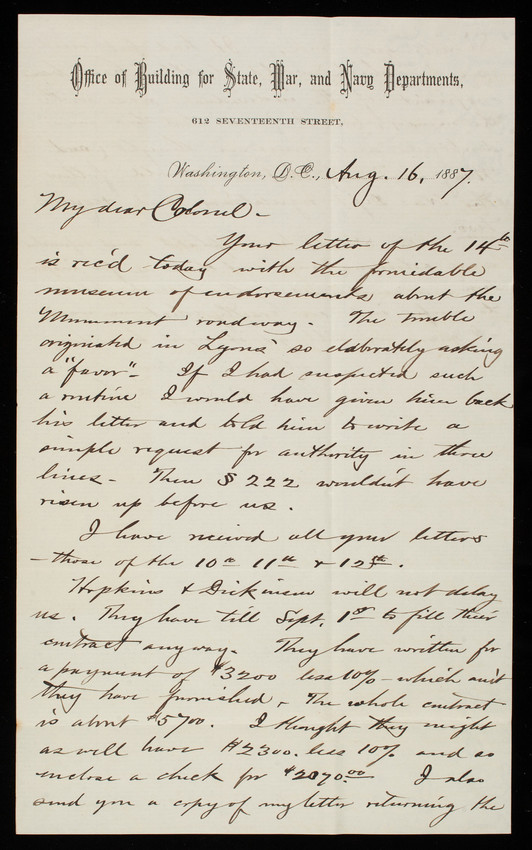 Office of Building for State, War, and Navy Departments,
612 SEVENTEENTH STREET,
Washington, D.C., Aug. 16, 1887.
My dear Colonel -
Your letter of the 14th
is rec'd today with the formidable
museum of endorsements about the
Monument roadway. The trouble
originated in Lyons' so elaborately asking
a "favor" - If I had suspected such
a routine I would have given him back
his letter and told him to write a
simple request for authority in three
lines - Then § 222 wouldn't have
risen up before us.
I have received all your letters
- those of the 10th 11th & 12th.
Hopkins & Dickinson will not delay
us. They have till Sept. 1st to fill their
contract anyway. They have written for
a payment of $3200 less 10% - which am't
they have furnished. The whole contract
is about $5700. I thought they might
as well have $2300. less 10% and so
inclose a check for $2070.00 I also
send you a copy of my letter returning the